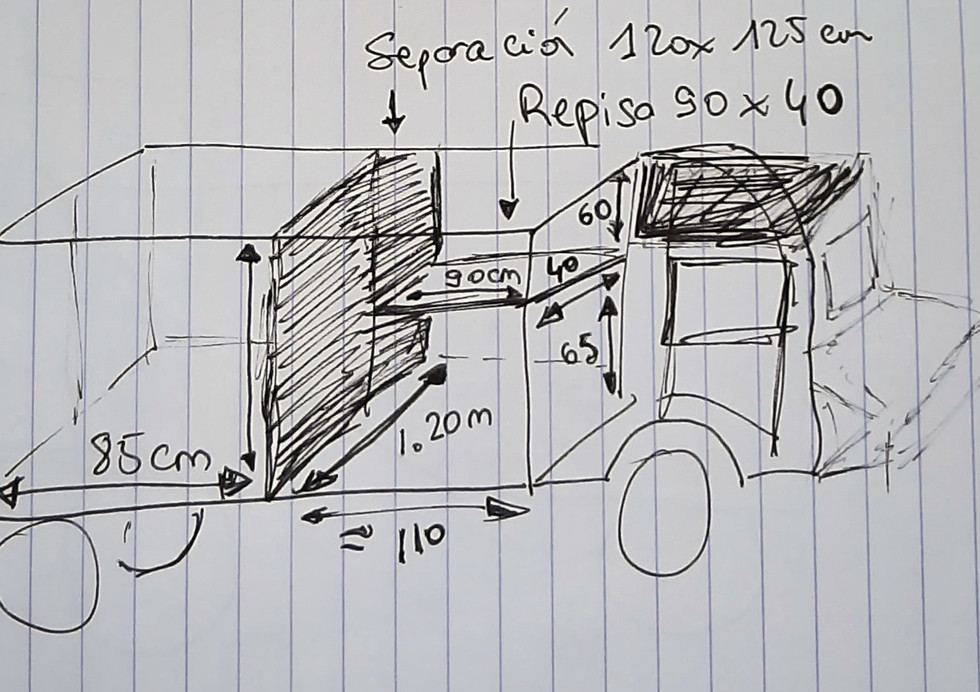 Separación 120x 125 cm
Repisa 90 x 40
60
40
90cm
65
1.20m
85cm
= 110